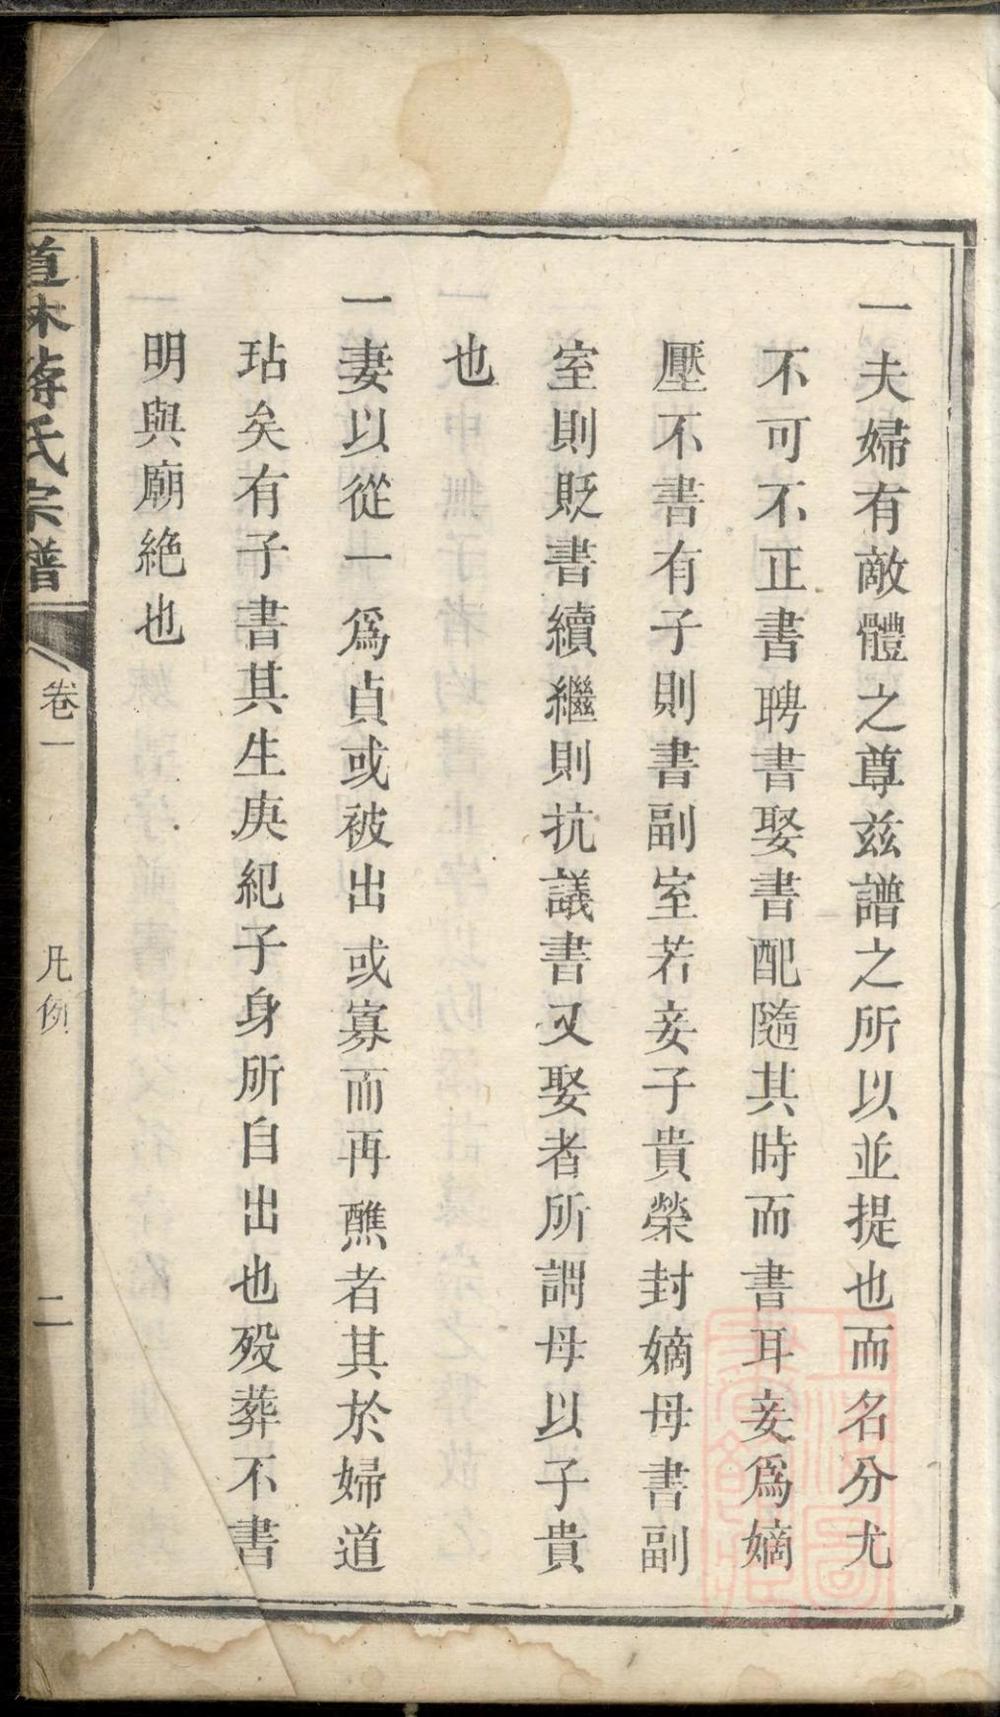 一夫婦有敵體之尊兹譜之所以並提也而名分尤
不可不正書聘書娶書配隨其時而書耳妾爲嫡
壓不書有子則書副室若妾子貴榮封嫡母書副
室則貶書續繼則抗議書又娶者所謂母以子貴
也
一妻以從一爲貞或被出或寡而再醮者其於婦道
玷矣有子書其生庚紀子身所自出也殁葬不書
明與廟絶也
道林蔣氏宗譜
卷一
凡例
二